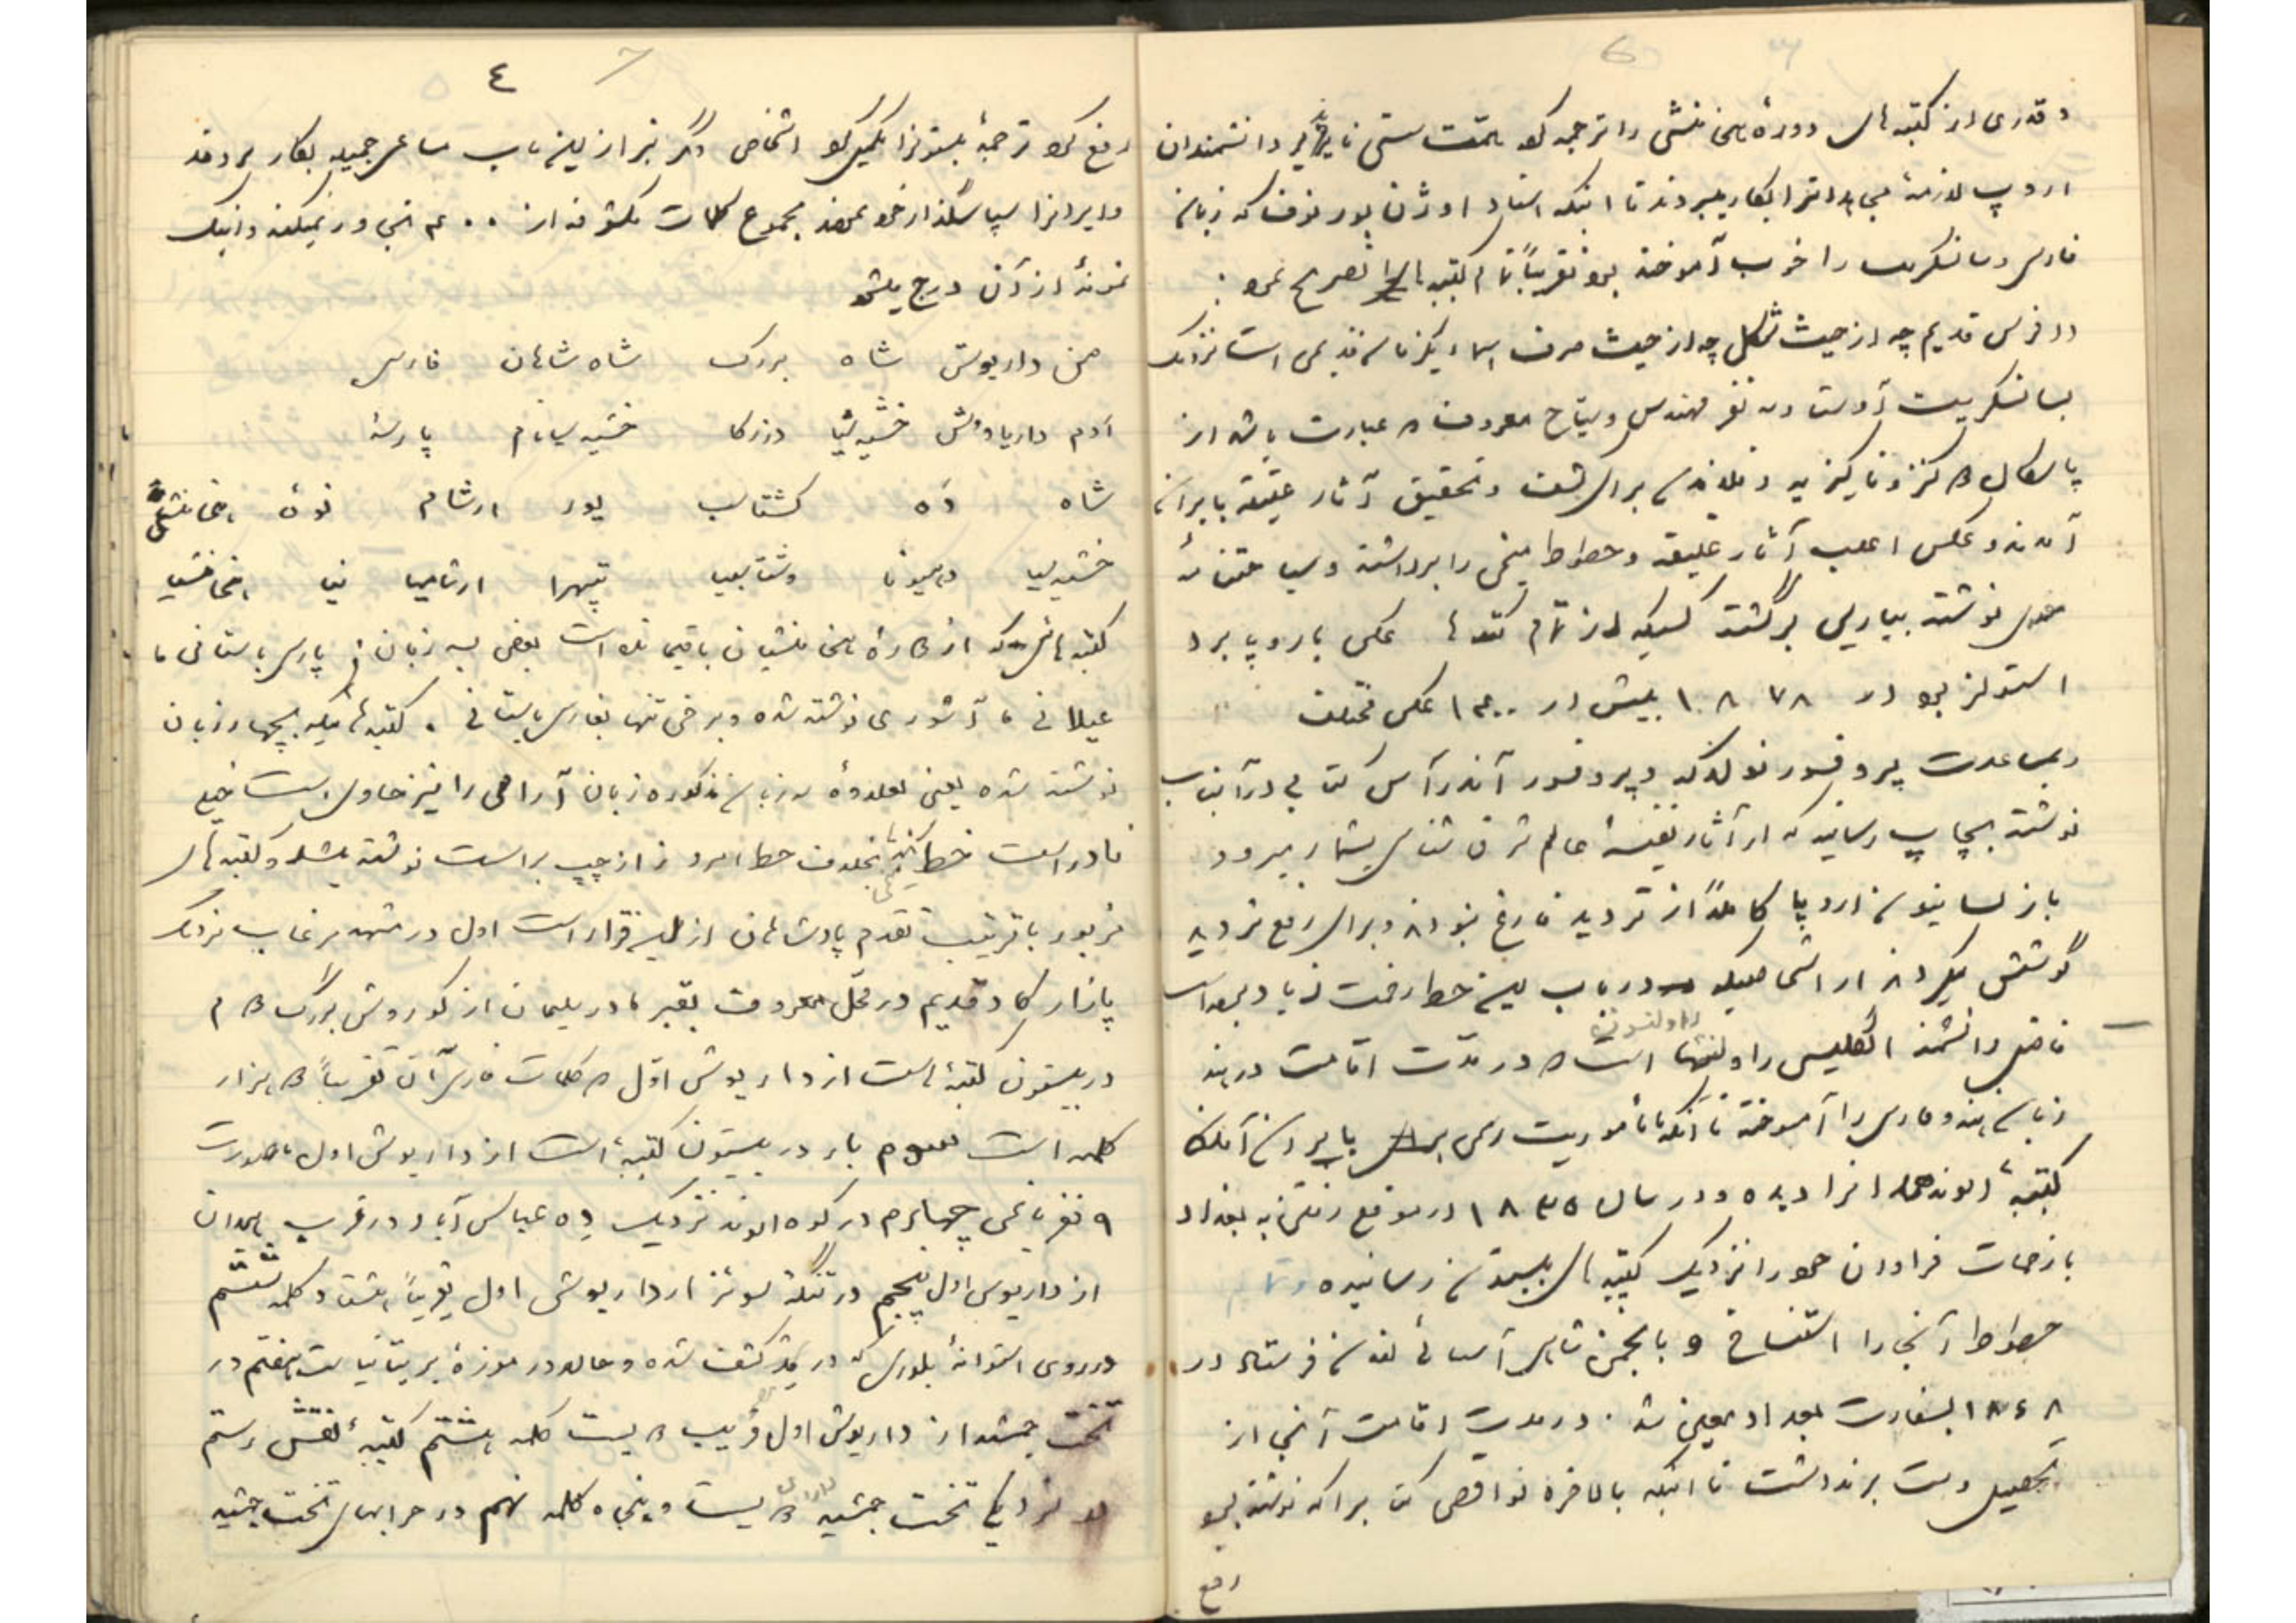 و قدری از کتبه های دورهٔ هخامنشی را ترجمه کرد همت سستی ناپذیر دانشمندان
اروپ لازمهٔ جدا نترا بکار میبردند تا اینکه استاد اوژن بورنوف که زبان
فارسی و سانسکریت را خوب آموخته بود تقریباً تمام کتبه ها را تصریح نمود .
در فرس قدیم چه از حیث شکل چه از حیث صرف اسماء یکزبان قدیمی است نزدیک
بسانسکریت آوستا و سه نفر مهندس و سیاح معروف که عبارت باشد از
پاسکال کنز و نایکزیه و فلاندن برای کشف و تحقیق آثار عتیقه بایران
آمدند و عکس اغلب آثار عتیقه و خطوط میخی را برداشته و سیاحتنامهٔ
خود نوشته بپاریس برگشتند کسیکه از تمام کتبه ها عکس باروپا برد
استولز بود در ۱۸۷۸ بیش از ۱۳۰۰ عکس مختلف
و بمساعدت پروفسور نولدکه و پروفسور آندرآس کتابی در آن باب
نوشته بچاپ رسانید که از آثار نفیسهٔ عالم شرق شناسی بشمار میرود
باز لسانیون اروپا کاملاً از تردید فارغ نبودند و برای رفع تردید
کوشش میکردند از اشخاصیکه در باب این خط زحمت زیاد برده است
فاضل دانشمند انگلیس راولنسون است که در مدت اقامت در هند
راولنسون
زبان هند و فارسی را آموخته تا آنکه با مأموریت رسمی بایران آمد
کتیبهٔ الوند همدانرا دیده و در سال ۱۸۳۵ در موقع رفتن به بغداد
با زحمات فراوان خود را نزدیک کتیبه های بیستون رسانیده و تمام
خطوط آنجا را استنساخ و بانجمن شاهی آسیائی لندن فرستاد در
۱۸۴۸ بسفارت بغداد معین شد . در مدت اقامت آنجا از
تحصیل دست برنداشت تا اینکه بالاخره نواقصی کتابرا که نوشته بود
رفع
٤
رفع کرد ترجمهٔ بیستونرا تکمیل کرد اشخاص دیگر نیز از این باب مساعی جمیله بکار بردند
و ایرانرا سپاسگذار خود نمودند مجموع کلمات مکشوفه از ۴۰۰ تجاوز نمیکند و اینک
نمونهٔ از آن درج میشود
من داریوش شاه بزرگ شاه شاهان فارس
آدم داریاووش خشیه ثیا وزرکا خشیه سیانام پارسه
شاه ده گشتاسب پور ارشام نوهٔ هخامنشی
خشیه سیا دهیونا وشتاسپیا پتهرا ارشامیا نیا هخامنشیا
کتبه هائیکه از دورهٔ هخامنشیان باقیمانده است بعضی بسه زبان : پارسی باستانی با
عیلامی با آشوری نوشته شده و برخی تنها بفارسی باستانی . کتبه هائیکه بچهار زبان
نوشته شده یعنی بعلاوهٔ سه زبان مذکوره زبان آرامی را نیز حاوی است خیلی
نادر است خط میخی بخلاف خط امروز از چپ براست نوشته میشد و کتبه های
مزبور با ترتیب تقدم پادشاهان از این قرار است اول در مشهد مرغاب نزدیک
پازارگاد قدیم در محل معروف بقبر مادر سلیمان از کوروش بزرگ دوم
در بیستون کتبهٔ است از داریوش اول که کلمات فارسی آن تقریباً دو هزار
کلمه است سوم باز در بیستون کتیبهٔ است از داریوش اول با صورت
۹ نفر یاغی چهارم در کوه الوند نزدیک ده عباس آباد در قرب همدان
از داریوس اول پنجم در تنگهٔ سوئز از داریوش اول تقریباً هشتاد کلمه ششم
در روی استوانهٔ بلوری که در مصر کشف شده و حالا در موزهٔ بریتانیا است هفتم در
تخت جمشید از داریوش اول قریب دویست کلمه هشتم کتیبهٔ نقش رستم
در نزدیکی تخت جمشید دویست و پنجاه کلمه نهم در خرابهای تخت جمشید